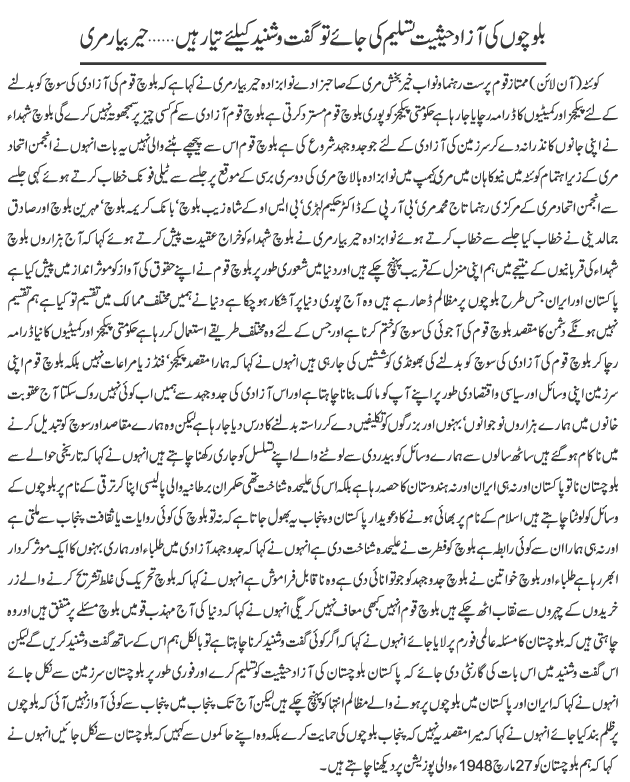 بلوچوں کی آزاد حیثیت تسلیم کی جائے تو گفت و شنید کیلئے تیار ہیں ...... حیر بیار مری
کوئٹہ (آن لائن) ممتاز قوم پرست رہنما و نواب خیر بخش مری کے صاحبزادے نوابزادہ حیر بیار مری نے کہا ہے کہ بلوچ قوم کی آزادی کی سوچ کو بدلنے
کے لئے پیکجز اور کمیٹیوں کا ڈرامہ رچایا جا رہا ہے حکومتی پیکجز کو پوری بلوچ قوم مسترد کرتی ہے بلوچ قوم آزادی سے کم کسی چیز پر سمجھوتہ نہیں کرے گی بلوچ شہداء
نے اپنی جانوں کا نذرانہ دے کر سرزمین کی آزادی کے لئے جو جدوجہد شروع کی ہے بلوچ قوم اس سے پیچھے ہٹنے والی نہیں یہ بات انہوں نے انجمن اتحاد
مری کے زیر اہتمام کوئٹہ میں نیو کاہان میں مری کیمپ میں نوابزادہ بالاچ مری کی دوسری برسی کے موقع پر جلسے سے ٹیلی فونک خطاب کرتے ہوئے کہی جلسے
سے انجمن اتحاد مری کے مرکزی رہنما تاج محمد مری‘ بی آر پی کے ڈاکٹر حکیم لہڑی‘ بی ایس او کے شاہ زیب بلوچ‘ بانک کریمہ بلوچ‘ مہرین بلوچ اور صادق
جمالدینی نے خطاب کیا جلسے سے خطاب کرتے ہوئے نوابزادہ حیر بیار مری نے بلوچ شہداء کو خراج عقیدت پیش کرتے ہوئے کہا کہ آج ہزاروں بلوچ
شہداء کی قربانیوں کے نتیجے میں ہم اپنی منزل کے قریب پہنچ چکے ہیں اور دنیا میں شعوری طور پر بلوچ قوم نے اپنے حقوق کی آواز کو موثر انداز میں پیش کیا ہے
پاکستان اور ایران جس طرح بلوچوں پر مظالم ڈھا رہے ہیں وہ آج پوری دنیا پر آشکار ہو چکا ہے دنیا نے ہمیں مختلف ممالک میں تقسیم تو کیا ہے ہم تقسیم
نہیں ہونگے دشمن کا مقصد بلوچ قوم کی آجوئی کی سوچ کو ختم کرنا ہے اور جس کے لئے وہ مختلف طریقے استعمال کر رہا ہے حکومتی پیکجز اور کمیٹیوں کا نیا ڈرامہ
رچا کر بلوچ قوم کی آزادی کی سوچ کو بدلنے کی بھونڈی کوششیں کی جا رہی ہیں انہوں نے کہا کہ ہمارا مقصد پیکجز‘ فنڈز یا مراعات نہیں بلکہ بلوچ قوم اپنی
سرزمین اپنی وسائل اور سیاسی واقتصادی طور پر اپنے آپ کو مالک بنانا چاہتا ہے اور اس آزادی کی جدوجہد سے ہمیں اب کوئی نہیں روک سکتا آج عقوبت
خانوں میں ہمارے ہزاروں نوجوانوں‘ بہنوں اور بزرگوں کو تکلیفیں دے کر راستہ بدلنے کا درس دیا جا رہا ہے لیکن وہ ہمارے مقاصد اور سوچ کو تبدیل کرنے
میں ناکام ہو گئے ہیں ساٹھ سالوں سے ہمارے وسائل کو بیدردی سے لوٹنے والے اپنے تسلسل کو جاری رکھنا چاہتے ہیں انہوں نے کہا کہ تاریخی حوالے سے
بلوچستان نا تو پاکستان اور نہ ہی ایران اور نہ ہندوستان کا حصہ رہا ہے بلکہ اس کی علیحدہ شناخت تھی حکمران برطانیہ والی پالیسی اپنا کر ترقی کے نام پر بلوچوں کے
وسائل کو لوٹنا چاہتے ہیں اسلام کے نام پر بھائی ہونے کا دعویدار پاکستان و پنجاب یہ بھول جاتا ہے کہ نہ تو بلوچ کی کوئی روایات یا ثقافت پنجاب سے ملتی ہے
اور نہ ہی ہمارا ان سے کوئی رابطہ ہے بلوچ کو فطرت نے علیحدہ شناخت دی ہے انہوں نے کہا کہ جدوجہد آزادی میں طلباء اور ہماری بہنوں کا ایک موثر کردار
ابھر رہا ہے طلباء اور بلوچ خواتین نے بلوچ جدوجہد کو جو توانائی دی ہے وہ ناقابل فراموش ہے انہوں نے کہا کہ بلوچ تحریک کی غلط تشریح کرنے والے زر
خریدوں کے چہروں سے نقاب اٹھ چکے ہیں بلوچ قوم انہیں کبھی معاف نہیں کریگی انہوں نے کہا کہ دنیا کی آج مہذب قومیں بلوچ مسئلے پر متفق ہیں اور وہ
چاہتی ہیں کہ بلوچستان کا مسئلہ عالمی فورم پر لایا جائے انہوں نے کہا کہ اگر کوئی گفت و شنید کرنا چاہتا ہے تو بالکل ہم اس کے ساتھ گفت و شنید کریں گے لیکن
اس گفت و شنید میں اس بات کی گارنٹی دی جائے کہ پاکستان بلوچستان کی آزاد حیثیت کو تسلیم کرے اور فوری طور پر بلوچستان سرزمین سے نکل جائے
انہوں نے کہا کہ ایران اور پاکستان میں بلوچوں پر ہونے والے مظالم انتہا کو پہنچ چکے ہیں لیکن آج تک پنجاب میں پنجاب سے کوئی آواز نہیں آئی کہ بلوچوں
پر ظلم بند کیا جائے انہوں نے کہا کہ میرا مقصد یہ نہیں کہ پنجاب بلوچوں کی حمایت کرے بلکہ وہ اپنے حاکموں سے کہیں کہ بلوچستان سے نکل جائیں انہوں نے
کہا کہ ہم بلوچستان کو 27 مارچ 1948ء والی پوزیشن پر دیکھنا چاہتے ہیں۔